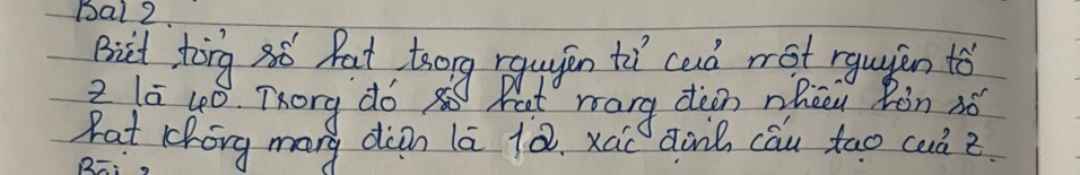 Bài 2.
Biết tổng số hạt trong nguyên tử của một nguyên tố
Z là 40. Trong đó số hạt mang điện nhiều hơn số
hạt không mang điện là 12. Xác định cấu tạo của Z.
Bài